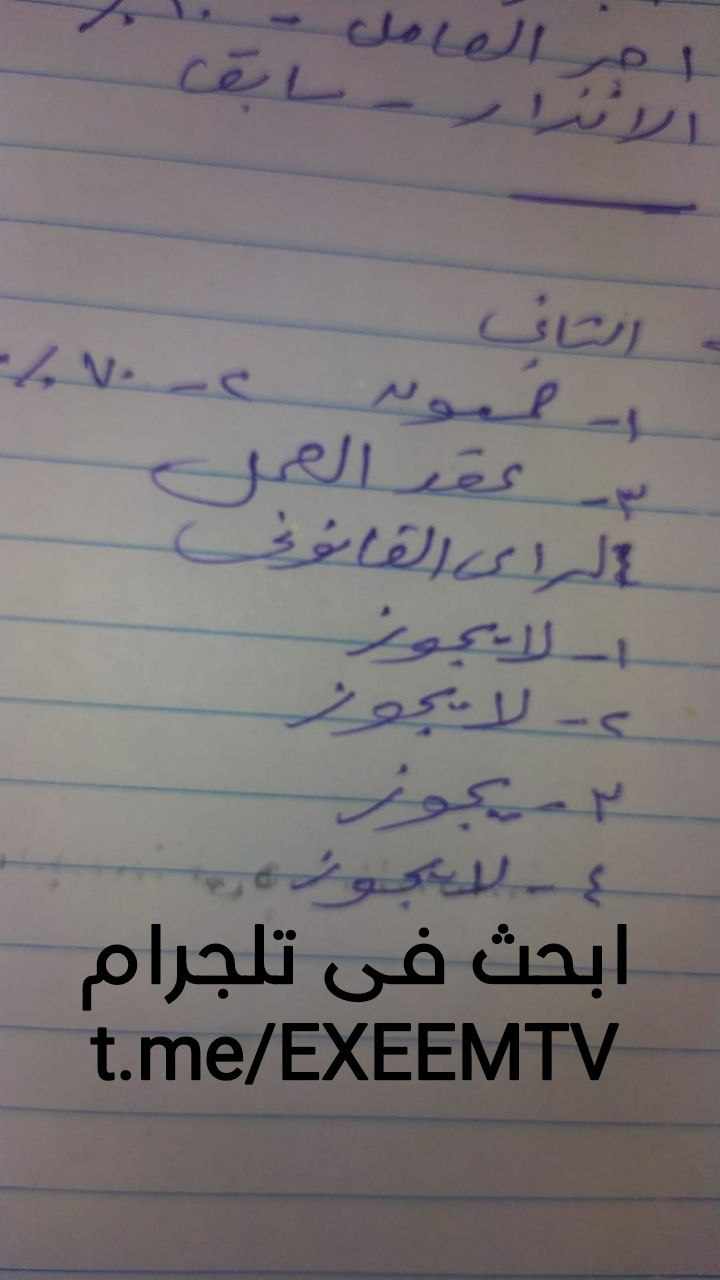 اجر العامل - ١٠٪
الانذار - سابق
- الثاني
١- خمسون ٢- ٧٠٪
٣- عقد العمل
الراى القانونى
١- لا يجوز
٢- لا يجوز
٣- يجوز
٤- لا يجوز
ابحث فى تلجرام
t.me/EXEEMTV